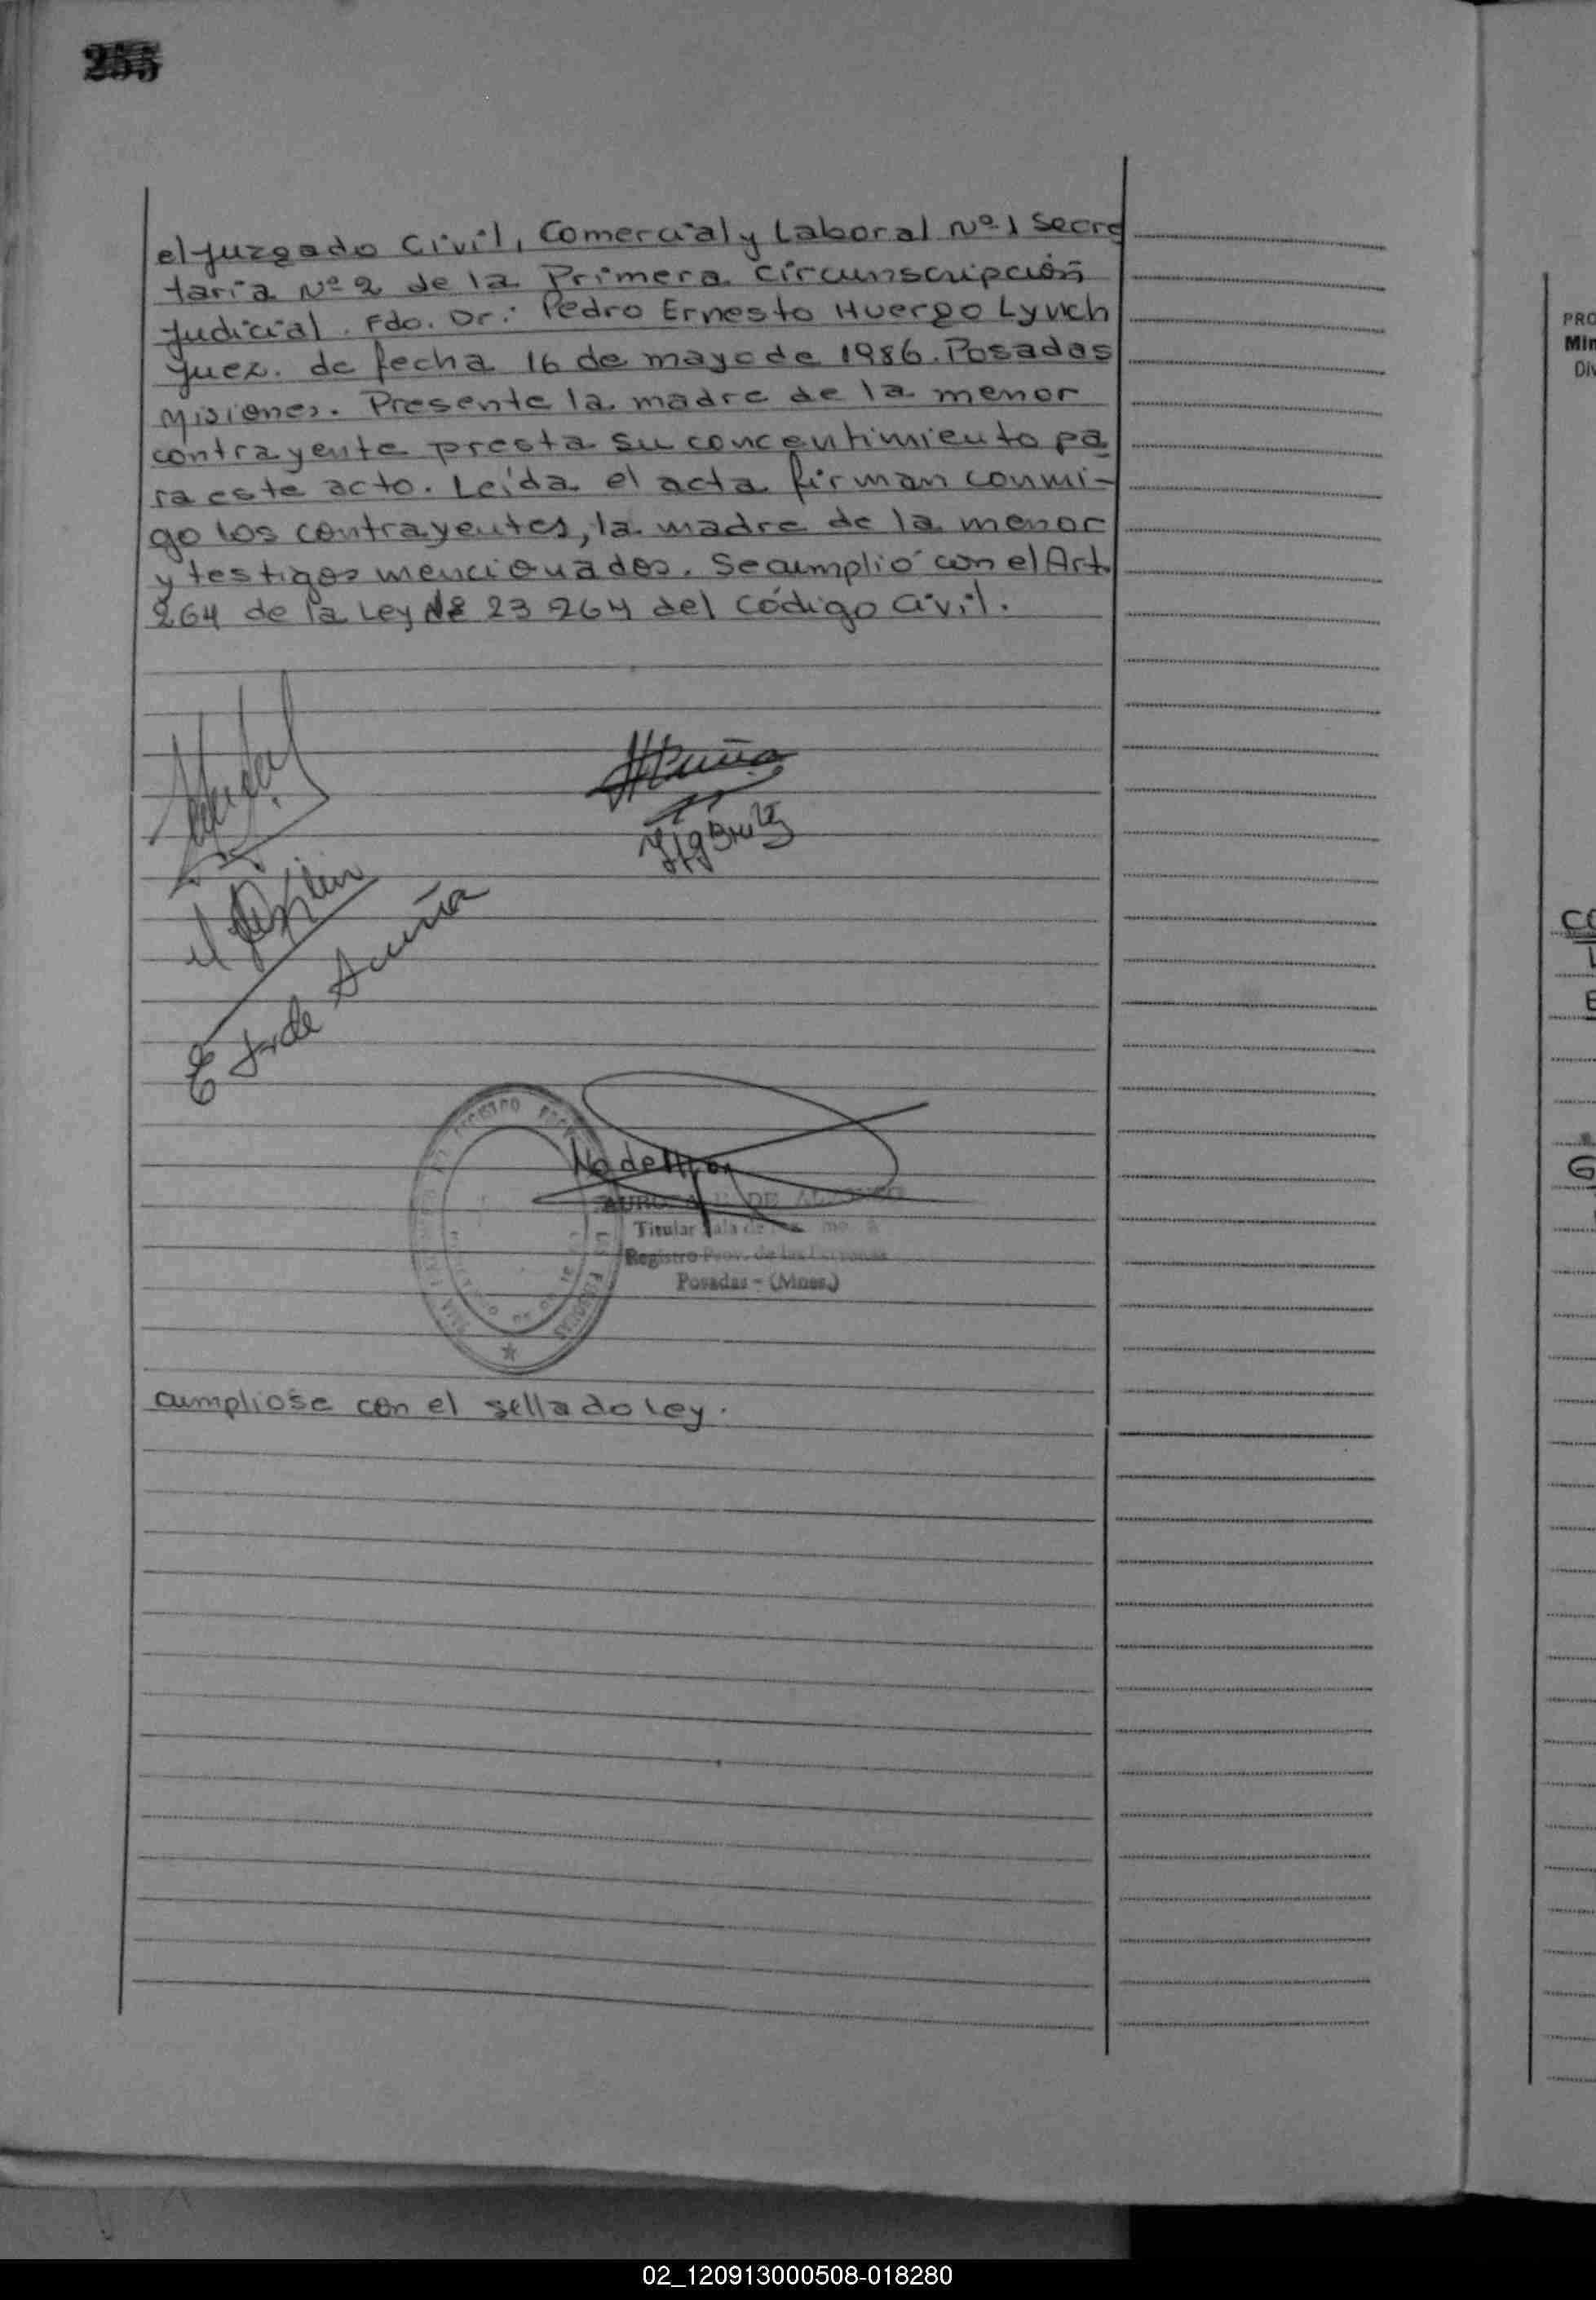 255
el juzgado Civil, Comercial y Laboral Nº 1 Secre
taria Nº 2 de la Primera Circunscripción
Judicial. Fdo. Dr: Pedro Ernesto Huergo Lynch
Juez. de fecha 16 de mayo de 1986. Posadas
Misiones. Presente la madre de la menor
contrayente presta su concentimiento pa
ra este acto. Leída el acta firman conmi-
go los contrayentes, la madre de la menor
y testigos mencionados. Se cumplió con el Art.
264 de la Ley 23 264 del Código Civil.
E J de Acuña
DE
Titular Sala de
Registro Prov. de las Personas
Posadas - (Mnes.)
cumpliose con el sellado Ley.
PRO
Min
Div
CO
E
G
02_120913000508-018280